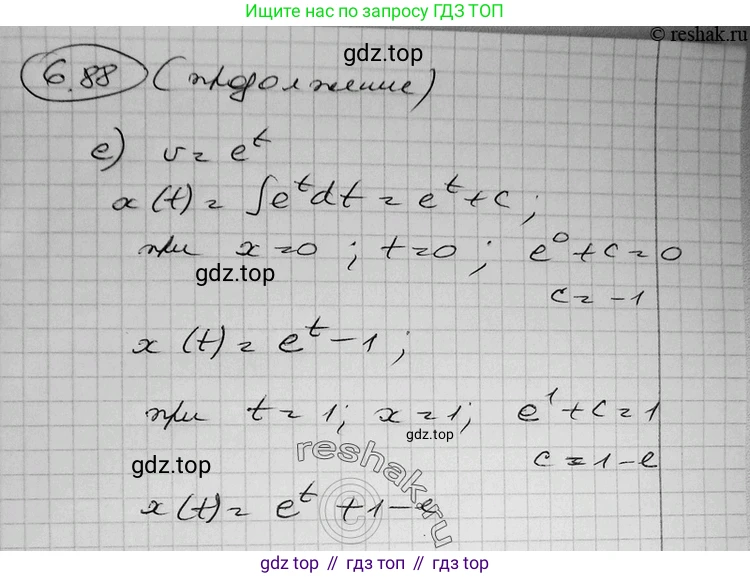 Ищите нас по запросу ГДЗ ТОП
© reshak.ru
gdz.top
6.88 (продолжение)
е) v = e^t
x(t) = ∫e^t dt = e^t + c;
при x=0; t=0; e^0 + c = 0
gdz.top
c = -1
x(t) = e^t - 1;
при t=1; x=1; e^1 + c = 1
gdz.top
c = 1 - e
reshak.ru
gdz.top
©
x(t) = e^t + 1 - e
gdz top // гдз топ // gdz top